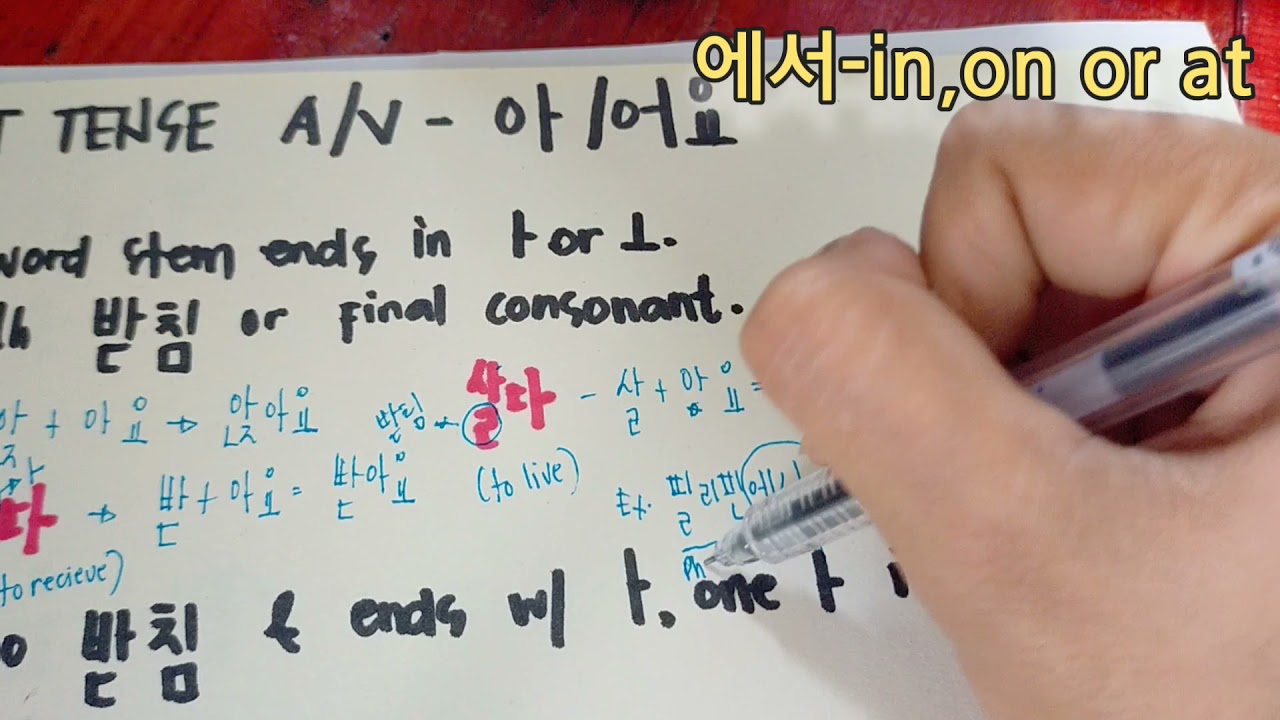 에서-in,on or at
T TENSE A/V - 아/어요
word stem ends in ㅏ or ㅗ.
th 받침 or final consonant.
+ 아요 → 앉아요 받침 살다 - 살 + 아요 =
다 → 받 + 아요 = 받아요 (to live) Ex. 필리핀에서
to recieve) Ph
o 받침 & ends w/ ㅏ, one ㅏ i